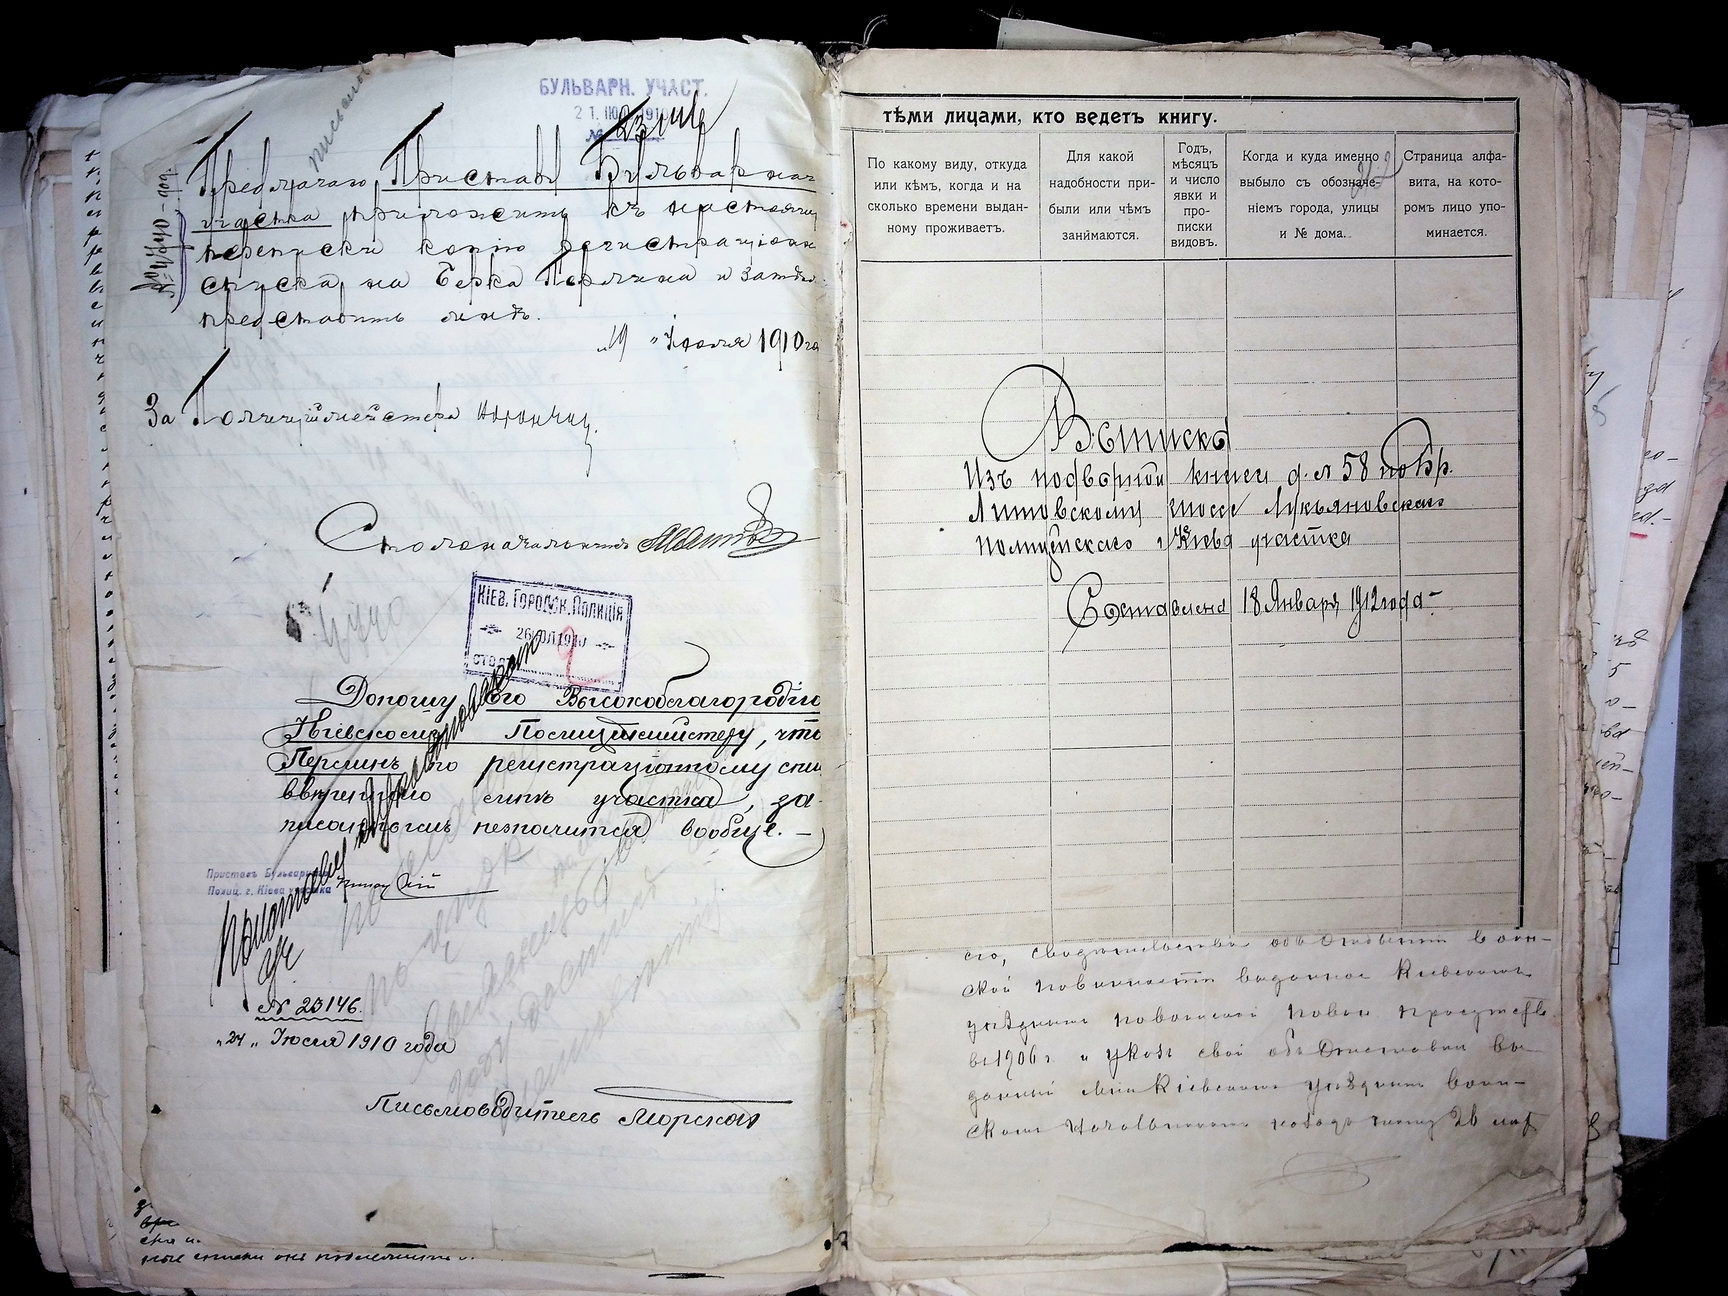 БУЛЬВАРН. УЧАСТ.
21. ІЮЛ 1910
№
Предлагаю Приставу Бульварнаг
участка приложить къ настоящ
переписки копію регистраціонн
списка на Берка Перлина и затѣм
представить мнѣ.
„19 " Іюля 1910 го
№ 4440
За Полиціймейстера
Столоначальникъ
4440
КІЕВ. ГОРОДСК. ПОЛИЦІЯ
26 ІЮЛ 1910
СТОЛ 2
Доношу Его Высокоблагородію
Кіевскому Полиціймейстеру, что
Перлинъ по регистраціонному спи
ввѣреннаго мнѣ участка, за-
писаннымъ незначится вообще.—
Приставъ Бульварн
Полиц. г. Кіева участка
№ 23146.
„24 „ Іюля 1910 года
Письмоводитель Морской
тѣми лицами, кто ведетъ книгу.
По какому виду, откуда или кѣмъ, когда и на сколько времени выданному проживаетъ.
Для какой надобности прибыли или чѣмъ занимаются.
Годъ, мѣсяцъ и число явки и прописки видовъ.
Когда и куда именно выбыло съ обозначеніемъ города, улицы и № дома.
Страница алфавита, на которомъ лицо упоминается.
Выписка
Изъ подворной книги д. № 58 по Бр.
Литовскому шоссе Лукьяновскаго
Полицейскаго г. Кіева участка
Составлена 18 Января 1912 года—
го, свидѣтельство объ отбытіи воин-
ской повинности выданное Кіевскимъ
уѣзднымъ по воинской повин присутств
въ 1906 г. и указъ свой объ отставки вы-
данный мнѣ Кіевскимъ уѣзднымъ воин-
скимъ Начальникомъ 26